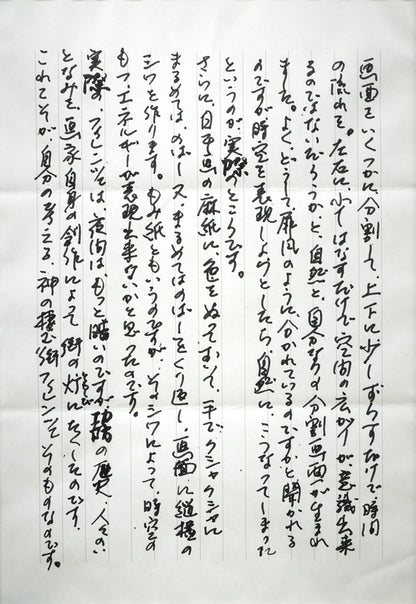 画面をいくつかに分割して、上下に少しずらすだけで、時間
の流れを。左右に少しはなすだけで空間の広がりが意識出来
るのではないだろうか、と、自然と、自分なりの分割画面が生まれ
ました。よく、どうして屏風のように、分かれているのですかと聞かれる
のですが、時空を表現しようとしたら、自然に、こうなってしまった
というのが、実際のところです。
さらに、日本画の麻紙に、色をぬっておいて、手でクシャクシャに
まるめては、のばし、又、まるめてはのばしをくり返し、画面に縦横の
シワを作ります。もみ紙ともいうのですが、そのシワによって、時空の
もつ、エネルギーが表現出来ないかと思ったのです。
実際の、フィレンツェは、夜間は、もっと暗いのですが、の歴史、人々のい
となみを、画家自身の創作によって街の灯にたくしたのです。
これこそが、自分の考える、神の棲む街フィレンツェそのものなのです。